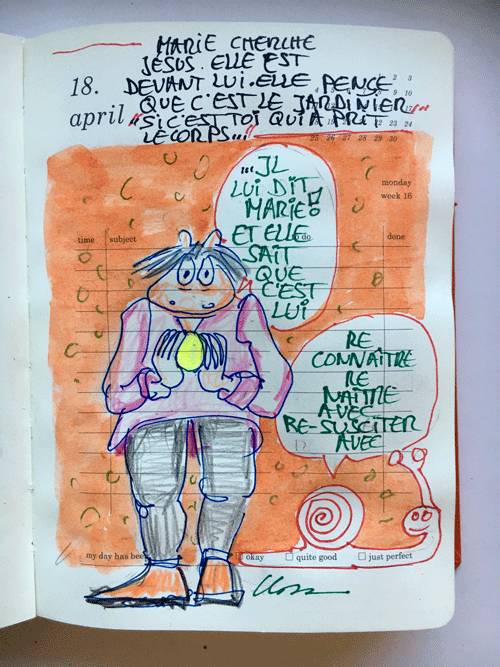 MARIE CHERCHE
JÉSUS. ELLE EST
DEVANT LUI. ELLE PENSE
QUE C'EST LE JARDINIER
"SI C'EST TOI QUI A PRIT
LE CORPS..."
18.
april
2 3
9 10
17
22 23 24
25 26 27 28 29 30
monday
week 16
time subject
to do
done
...IL
LUI DIT
MARIE!
ET ELLE
SAIT
QUE
C'EST
LUI
RE
CONNAÎTRE
RE
NAÎTRE
AVEC
RE-SUSCITER
AVEC
my day has bee
okay
quite good
just perfect